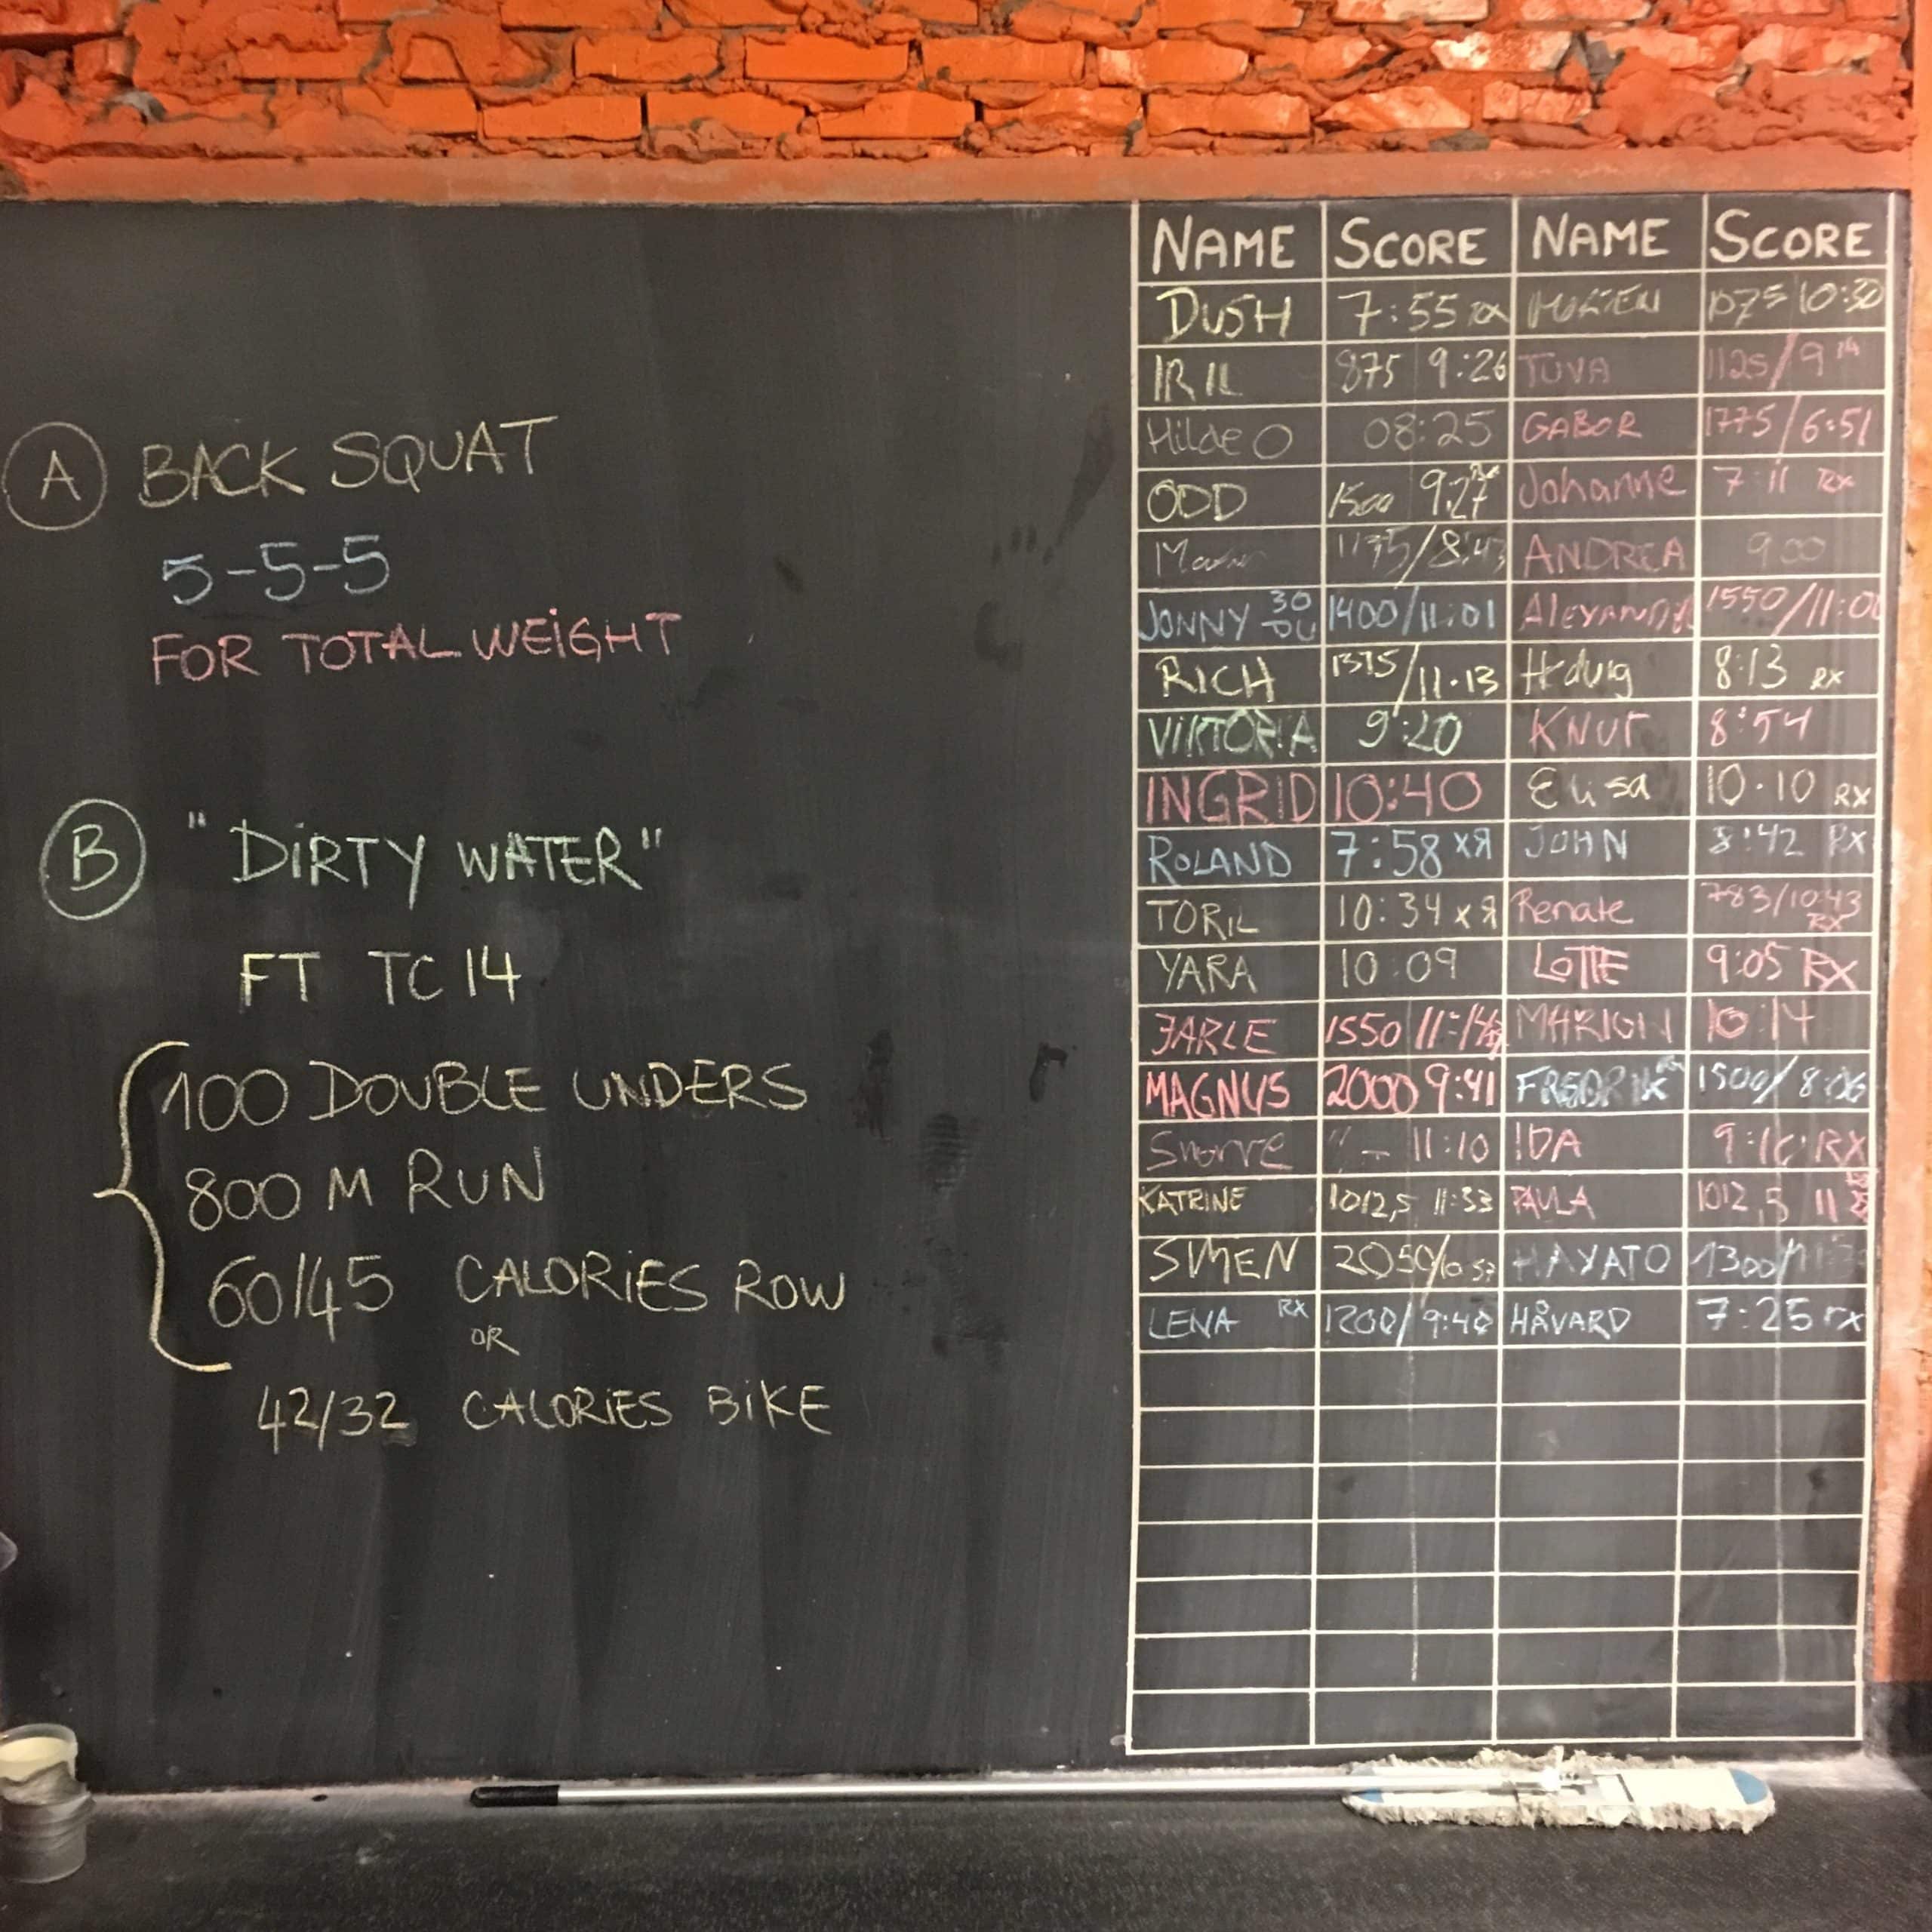 A BACK SQUAT
5-5-5
FOR TOTAL WEIGHT
B "DIRTY WATER"
FT TC 14
100 DOUBLE UNDERS
800 M RUN
60/45 CALORIES ROW
OR
42/32 CALORIES BIKE
NAME SCORE NAME SCORE
DUSH 7:55 RX 1075 10:30
IRIL 875 9:26 TUVA 1125/9
Hilde O 08:25 GABOR 1775/6:51
ODD 1500 9:27 Johanne 7:11 RX
ANDREA 9:00
JONNY 30 DU 1400/11:01 1550/11:00
RICH 1375/11.13 Hedvig 8:13 RX
VIKTORIA 9:20 KNUT 8:54
INGRID 10:40 Elisa 10.10 RX
ROLAND 7:58 XR JOHN 8:42 RX
TORIL 10:34 XR Renate 783/10:43 RX
YARA 10:09 LOTTE 9:05 RX
JARLE 1550 MARION 10:14
MAGNUS 2000 9:41 FREDRIK 1500/8:06
Snorre 11:10 IDA RX
KATRINE 1012,5 11:33 PAULA 1012,5 11
SIMEN 2050/10:57 HAYATO 1300/
LENA RX 1200/9:40 HÅVARD 7:25 RX